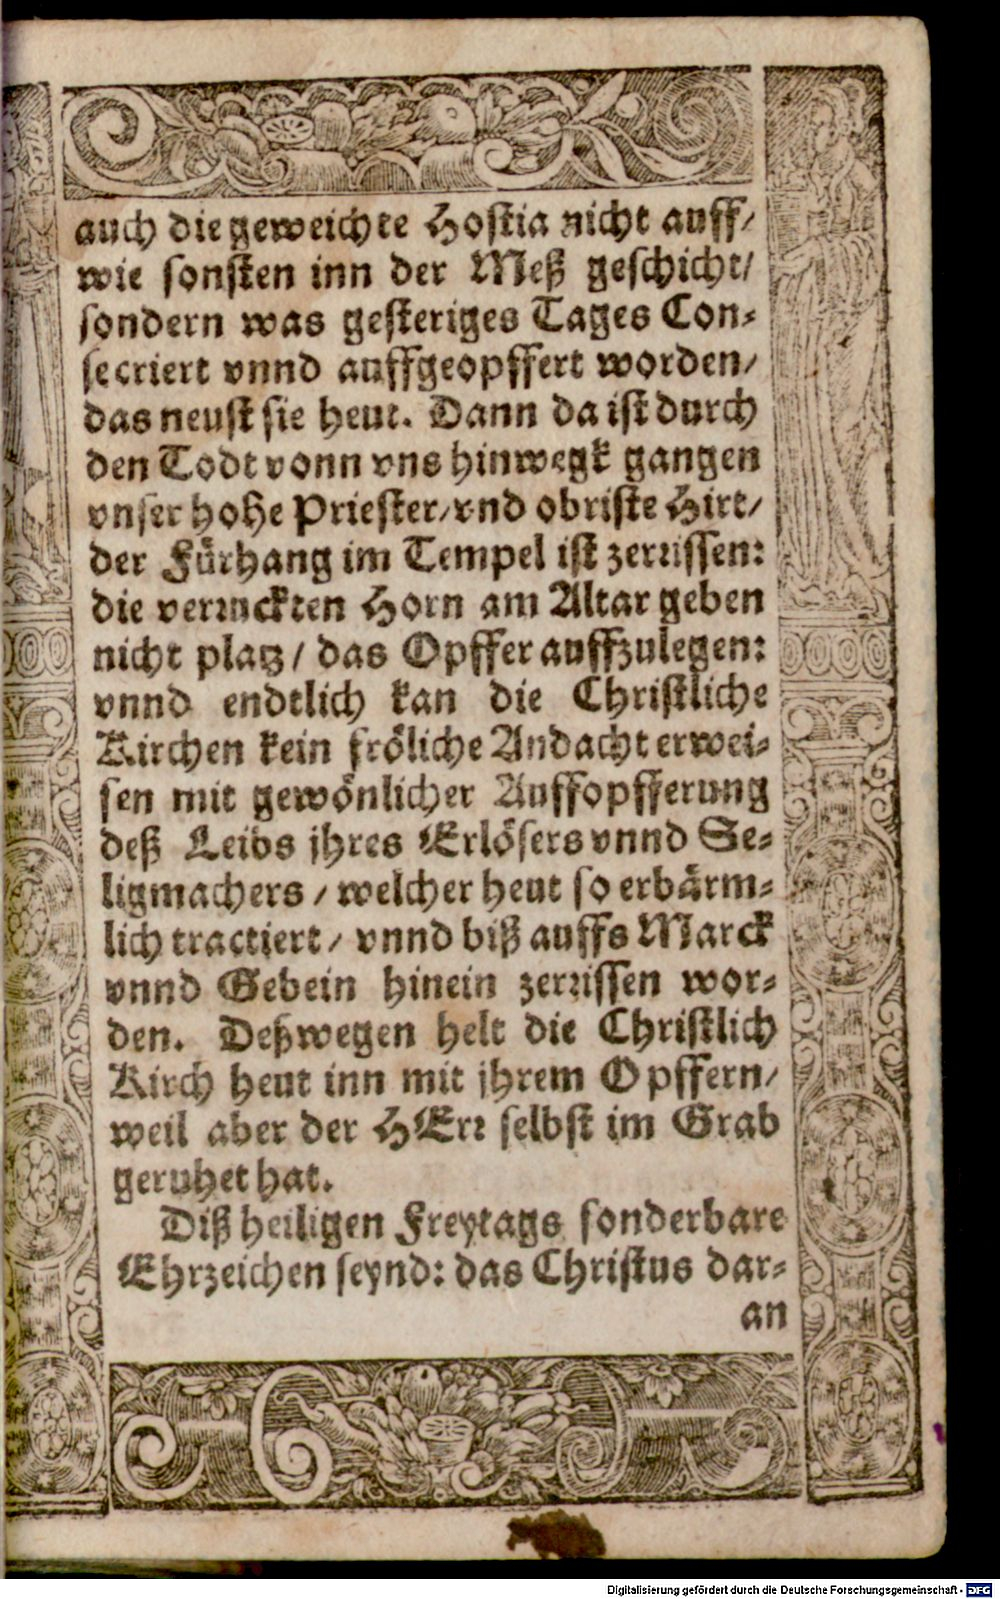 auch die geweichte Hostia nicht auff/
wie sonsten inn der Meß geschicht/
sondern was gesteriges Tages Con⸗
secriert vnnd auffgeopffert worden/
das neust sie heut. Dann da ist durch
den Todt vonn vns hinwegk gangen
vnser hohe Priester/vnd obriste Hirt/
der Fürhang im Tempel ist zerrissen:
die verruckten Horn am Altar geben
nicht platz/ das Opffer auffzulegen:
vnnd endtlich kan die Christliche
Kirchen kein fröliche Andacht erwei⸗
sen mit gewönlicher Auffopfferung
deß Leibs jhres Erlösers vnnd Se⸗
ligmachers/ welcher heut so erbärm⸗
lich tractiert/ vnnd biß auffs Marck
vnnd Gebein hinein zerrissen wor⸗
den. Deßwegen helt die Christlich
Kirch heut inn mit jhrem Opffern/
weil aber der HErr selbst im Grab
geruhet hat.
Diß heiligen Freytags sonderbare
Ehrzeichen seynd: das Christus dar⸗
an
Digitalisierung gefördert durch die Deutsche Forschungsgemeinschaft - DFG